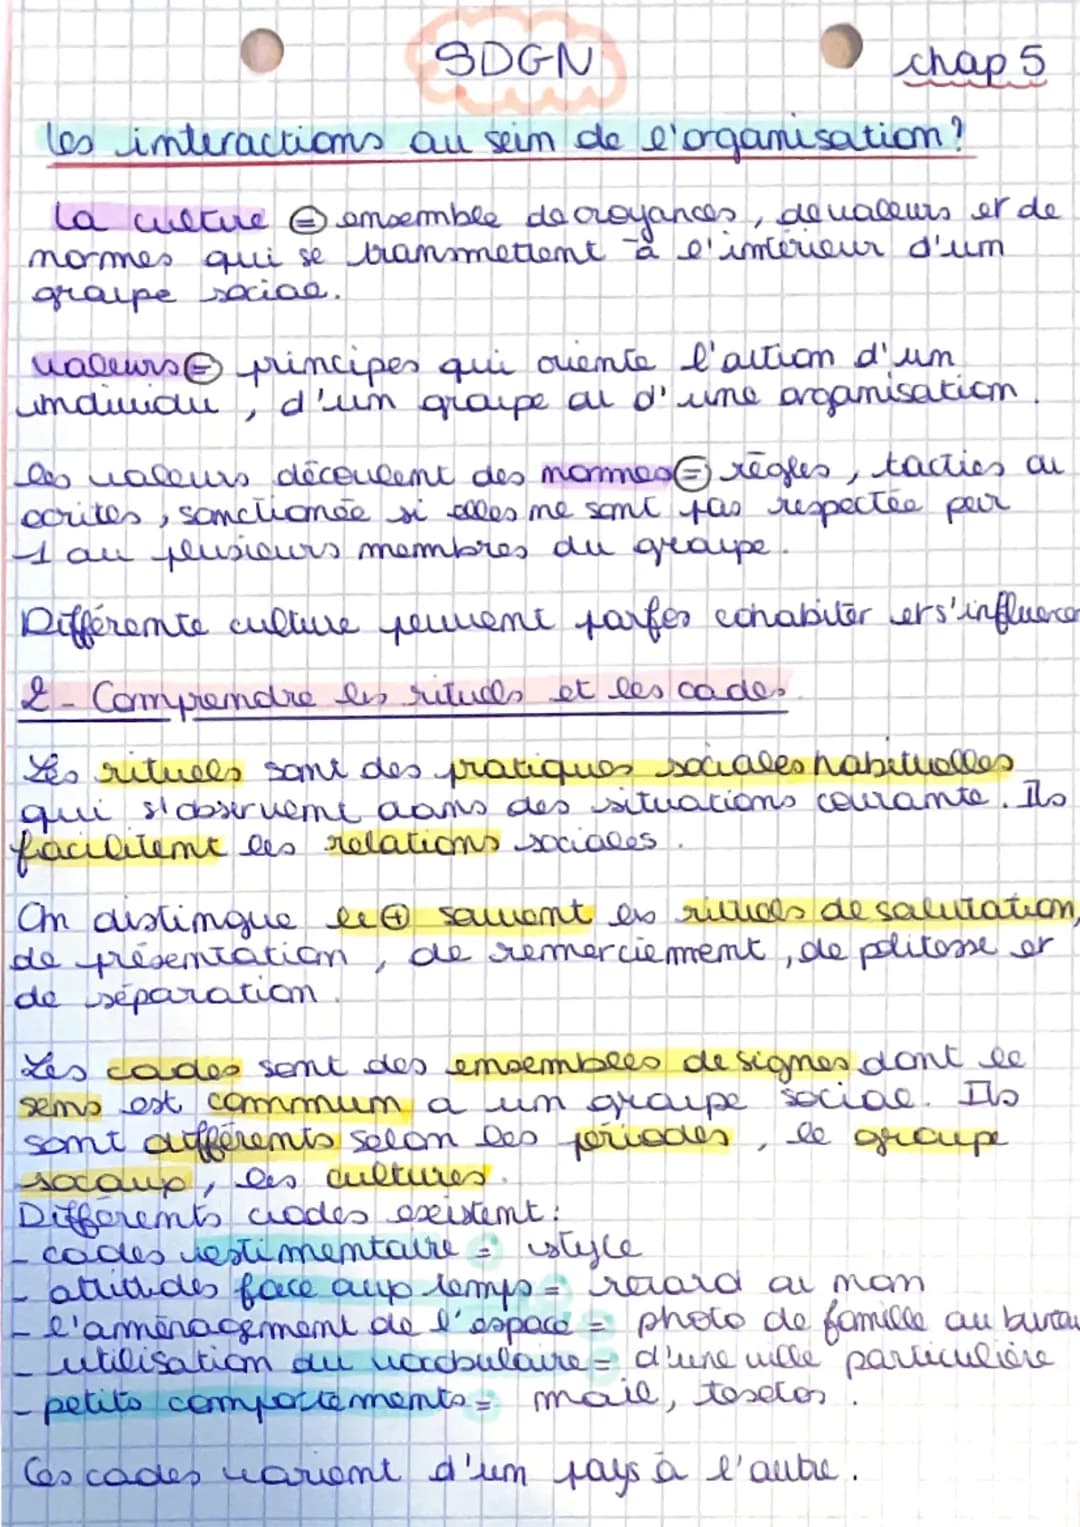 SDGN
chap 5
les interactions au sein de l'organisation?
la culture = ensemble de croyances, de valeurs et de
normes qui se transmettent à l'intérieur d'un
groupe social.
valeurs = principes qui oriente l'action d'un
individu, d'un groupe ou d'une organisation.
les valeurs découlent des normes = règles, tacties ou
écrites, sanctionnée si elles ne sont pas respectée par
1 ou plusieurs membres du groupe.
Différente culture peuvent parfes cohabiter et s'influencer
2 - Comprendre les rituels et les codes.
Les rituels sont des pratiques sociales habituelles
qui s'observent dans des situations courante. Ils
facilitent les relations sociales.
On distingue le + souvent les rituels de salutation,
de présentation, de remerciement, de politesse et
de séparation.
Les codes sont des ensembles de signes dont le
sens est commun a un groupe social. Ils
sont différents selon les périodes, le groupe
socaux, les cultures.
Différents codes existent:
- codes vestimentaire = style
- attitudes face aux temps = retard ou non
- l'aménagement de l'espace = photo de famille au bureau
- utilisation du vocabulaire = d'une ville particulière
- petits comportements = mail, textos.
Ces codes varient d'un pays à l'autre.